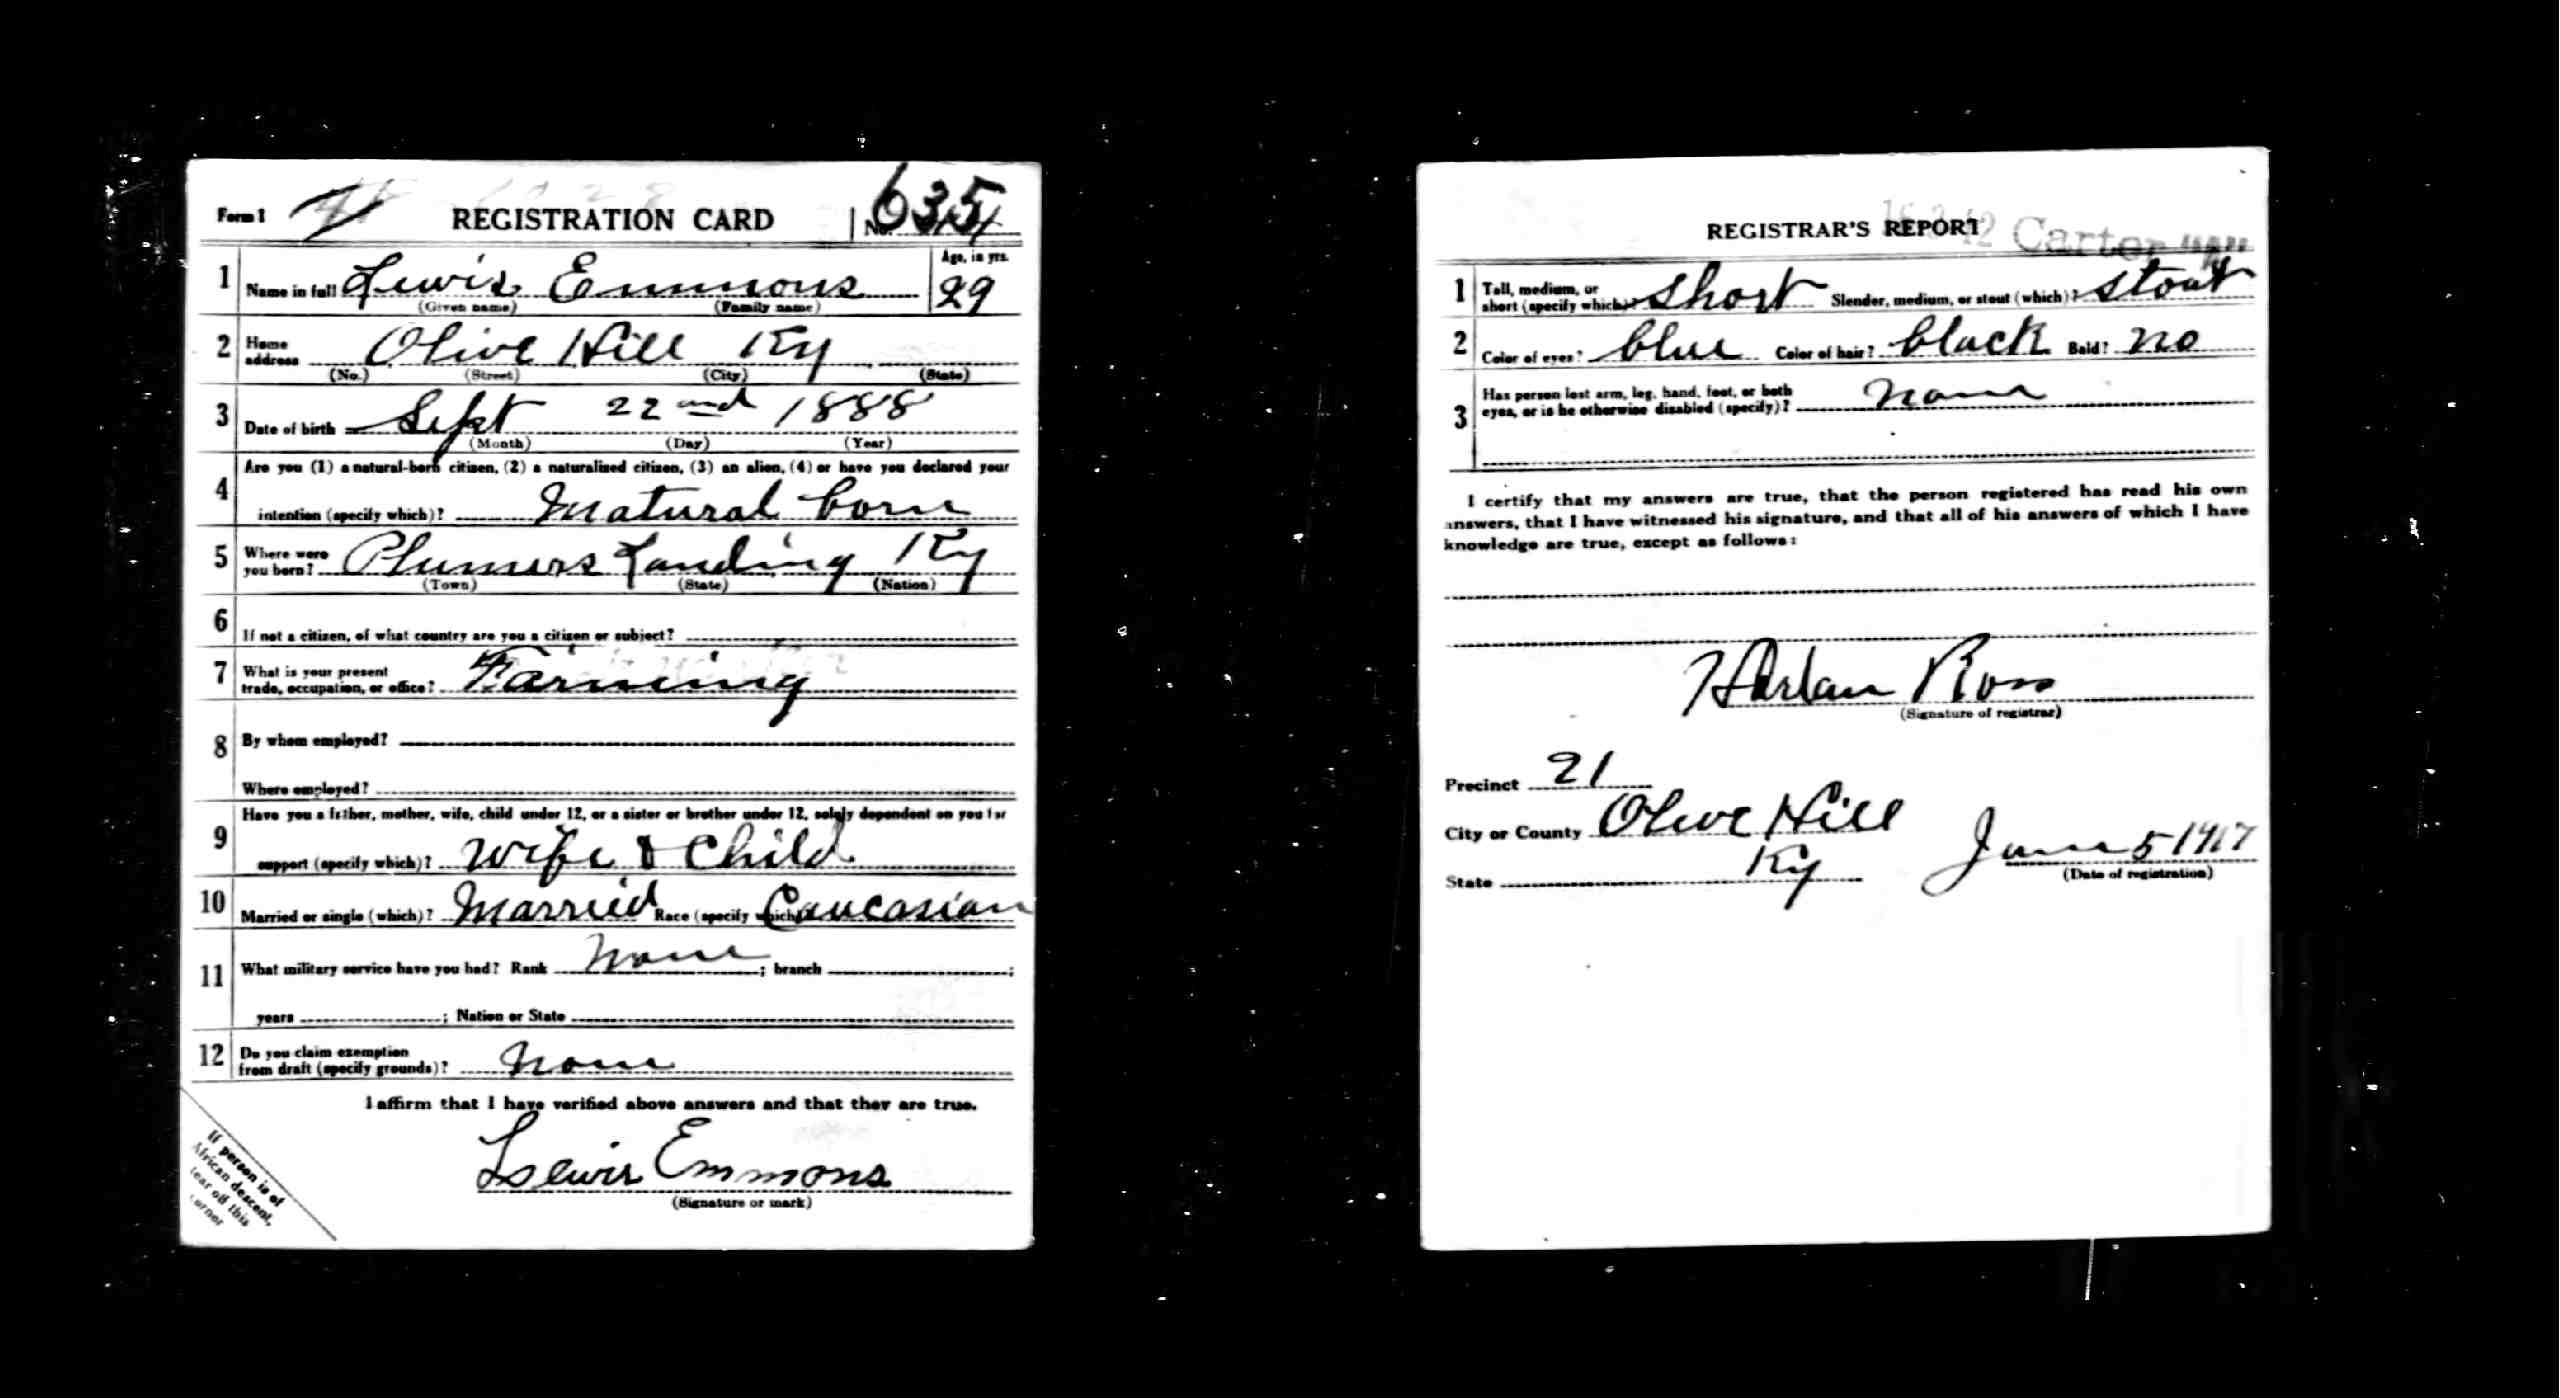 Form 1 REGISTRATION CARD No. 635
1 Name in full Lewis Emmons Age, in yrs. 29
(Given name) (Family name)
2 Home address Olive Hill Ky
(No.) (Street) (City) (State)
3 Date of birth Sept 22nd 1888
(Month) (Day) (Year)
4 Are you (1) a natural-born citizen, (2) a naturalized citizen, (3) an alien, (4) or have you declared your
intention (specify which)? Natural born
5 Where were you born? Plumers Landing Ky
(Town) (State) (Nation)
6 If not a citizen, of what country are you a citizen or subject?
7 What is your present
trade, occupation, or office? Farming
8 By whom employed?
Where employed?
9 Have you a father, mother, wife, child under 12, or a sister or brother under 12, solely dependent on you for
support (specify which)? Wife & Child
10 Married or single (which)? Married Race (specify which) Caucasian
11 What military service have you had? Rank None ; branch ;
years ; Nation or State
12 Do you claim exemption
from draft (specify grounds)? None
I affirm that I have verified above answers and that they are true.
Lewis Emmons
(Signature or mark)
If person is of
African descent,
tear off this
corner
REGISTRAR'S REPORT
Carter "A"
1 Tall, medium, or
short (specify which)? Short Slender, medium, or stout (which)? Stout
2 Color of eyes? blue Color of hair? black Bald? no
3 Has person lost arm, leg, hand, foot, or both
eyes, or is he otherwise disabled (specify)? None
I certify that my answers are true, that the person registered has read his own
answers, that I have witnessed his signature, and that all of his answers of which I have
knowledge are true, except as follows:
Harlan Ross
(Signature of registrar)
Precinct 21
City or County Olive Hill
State Ky June 5 1917
(Date of registration)